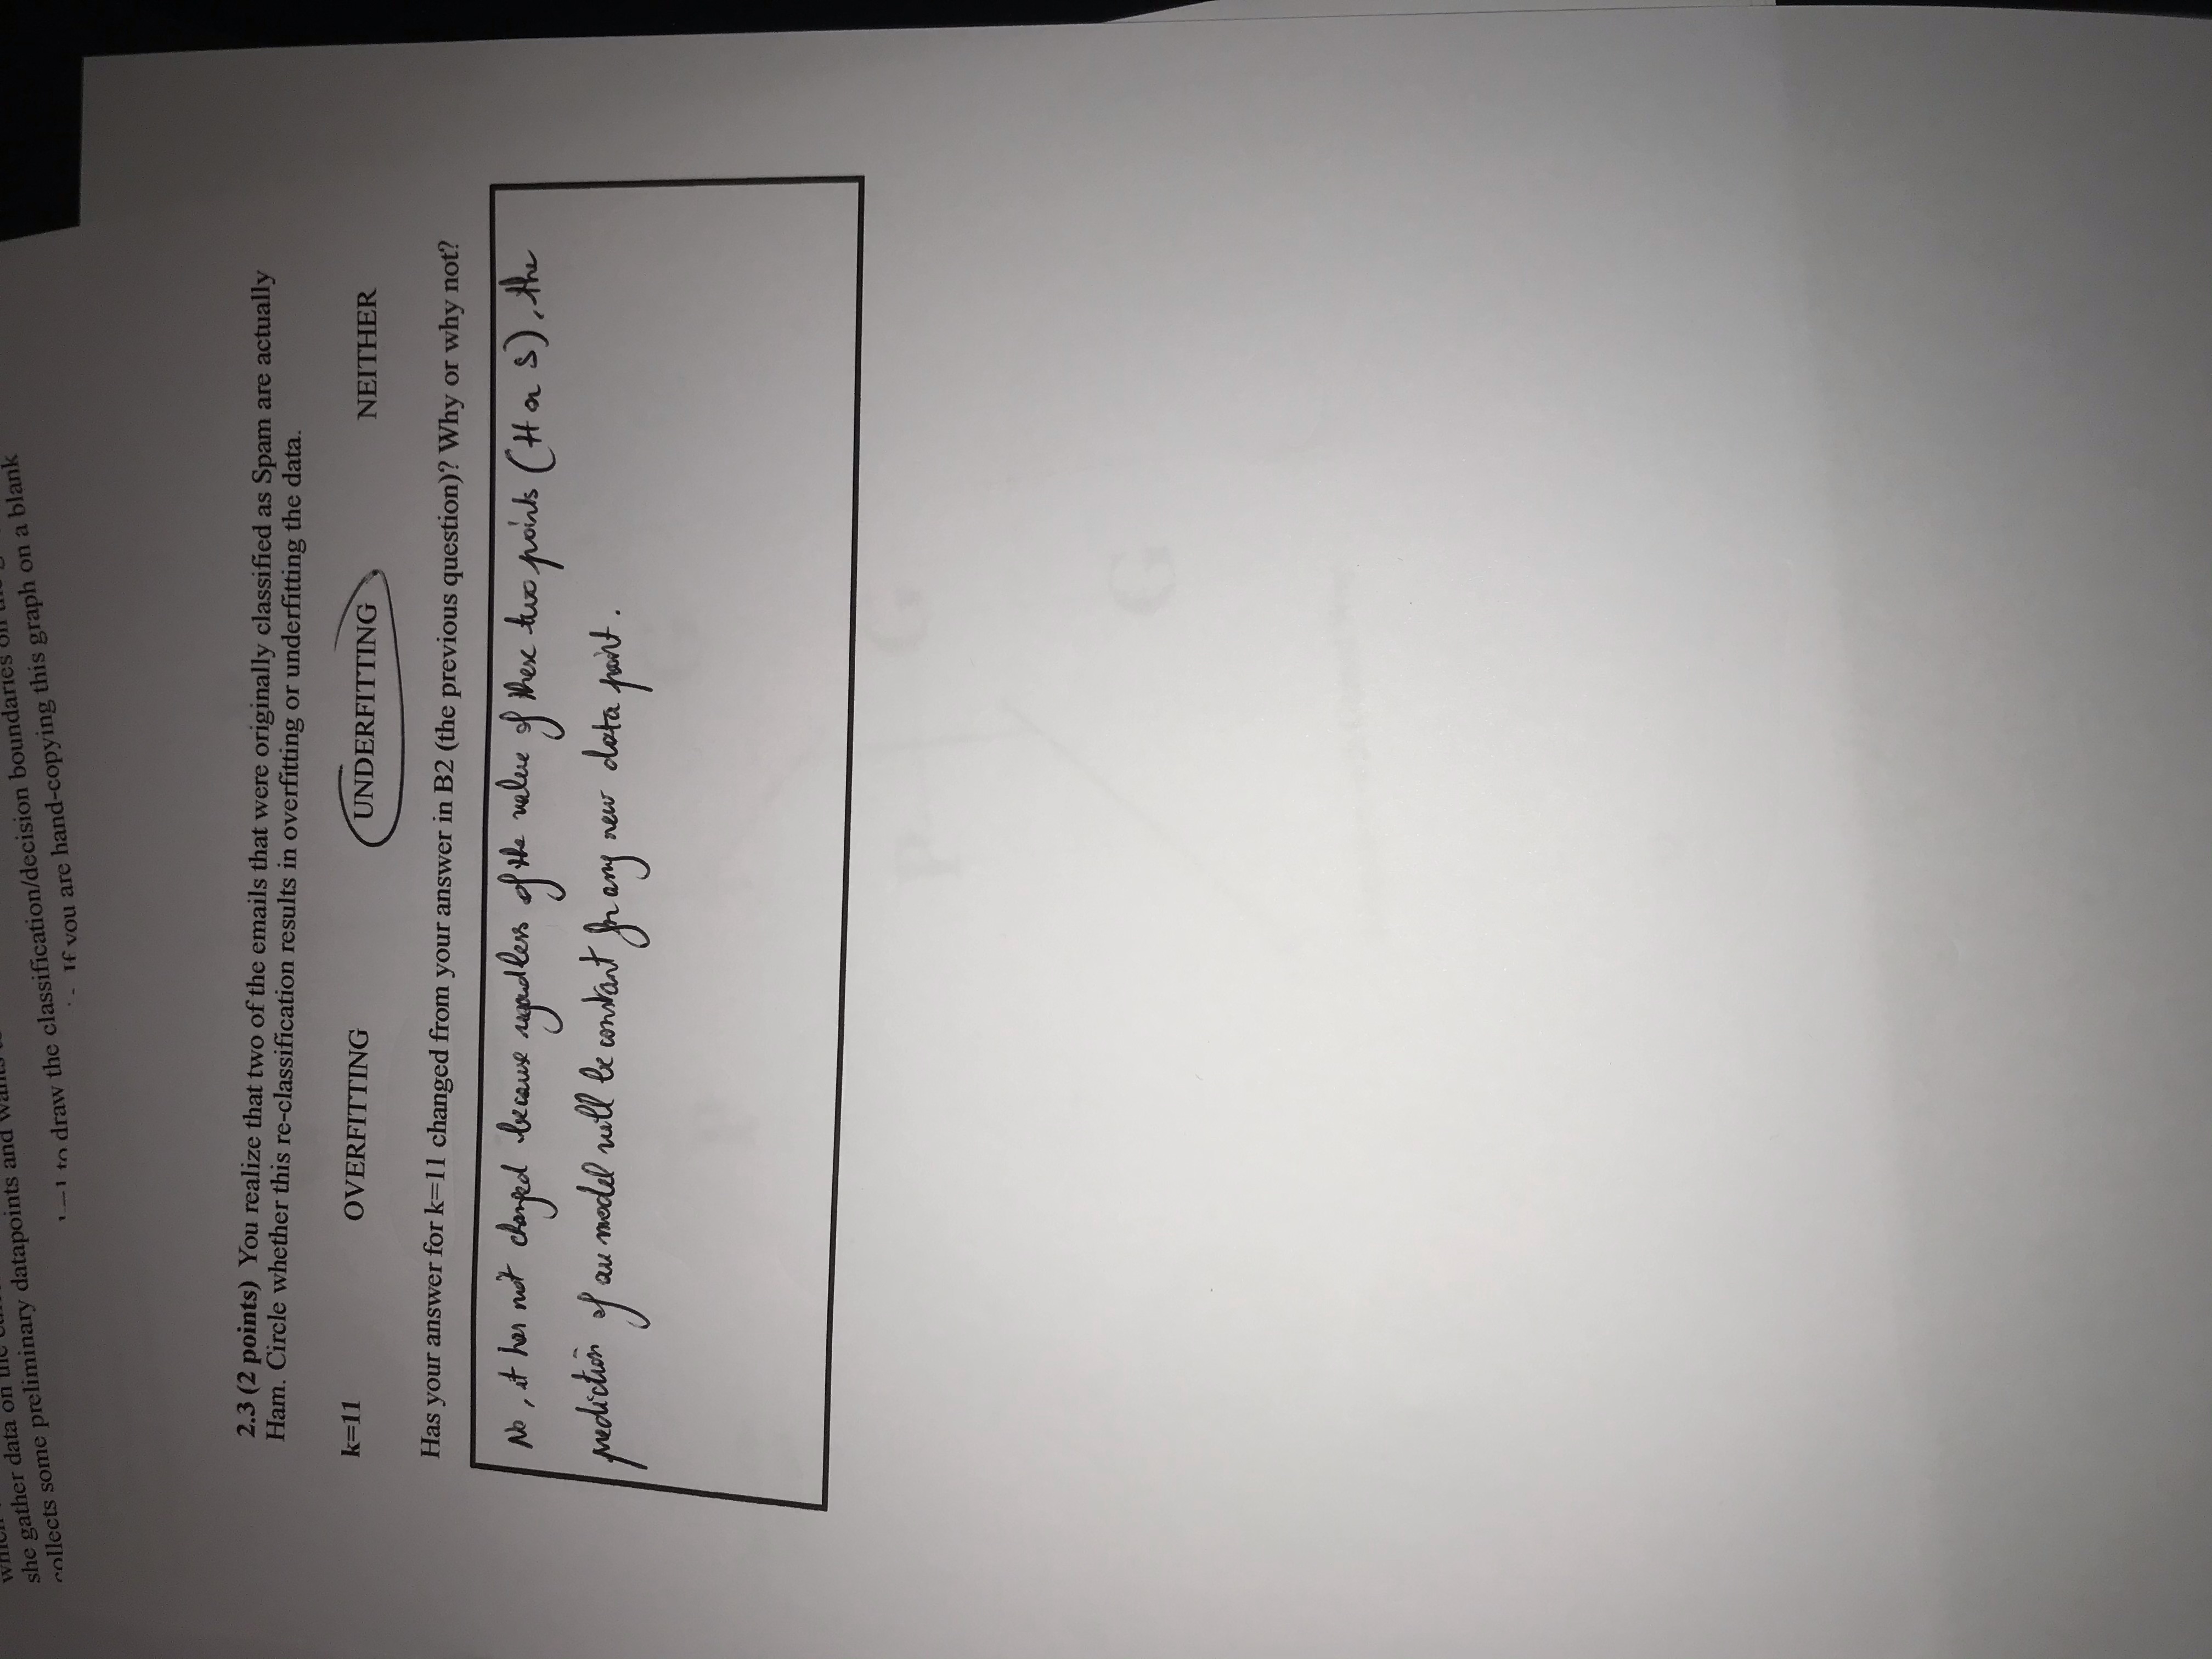 she gather data on the
collects some preliminary datapoints and
to draw the classification/decision boundaries on
If you are hand-copying this graph on a blank
2.3 (2 points) You realize that two of the emails that were originally classified as Spam are actually
Ham. Circle whether this re-classification results in overfitting or underfitting the data.
k=11 OVERFITTING UNDERFITTING NEITHER
Has your answer for k=11 changed from your answer in B2 (the previous question)? Why or why not?
No, it has not changed because regardless of the value of these two points (H or S), the
prediction of our model will be constant for any new data point.
P
G
P
G
G